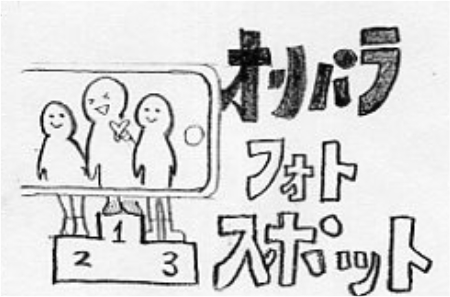 オリパラ
フォト
スポット
1
2 3